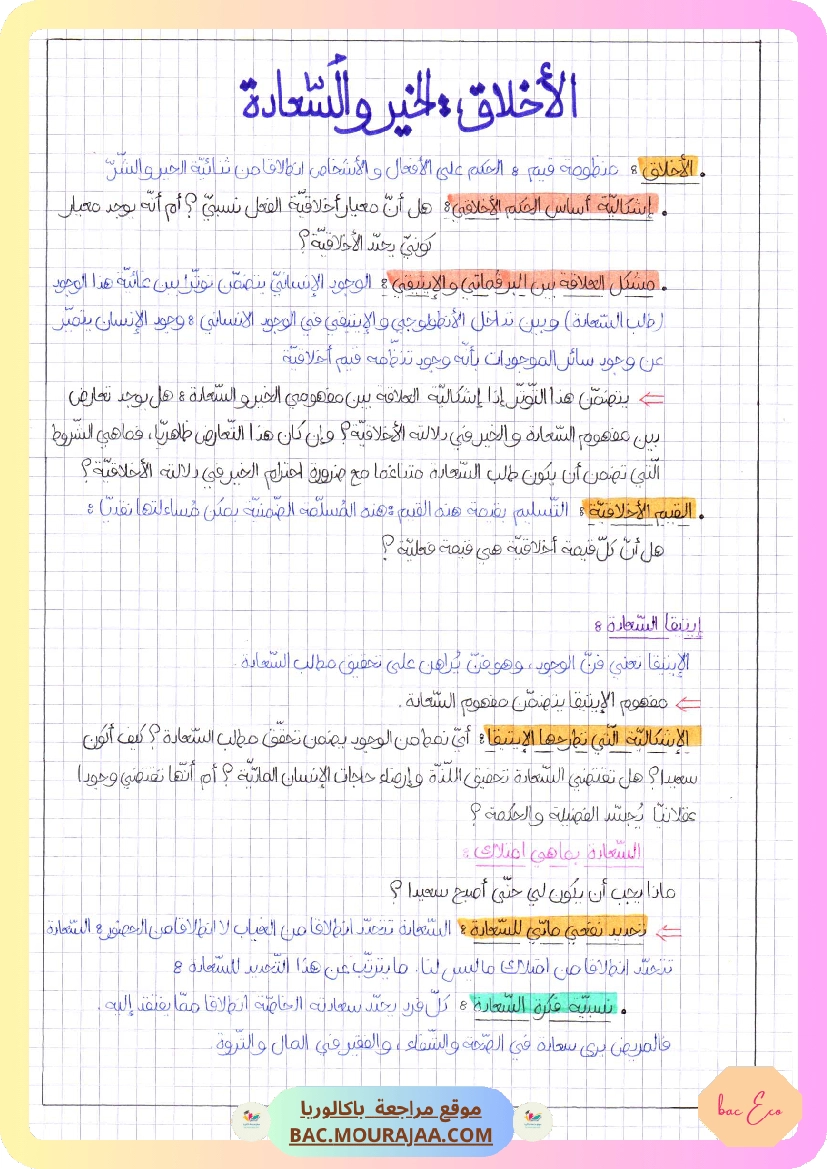 الأخلاق: الخير والسّعادة
• الأخلاق: منظومة قيم: الحكم على الأفعال والأشخاص انطلاقا من ثنائيّة الخير والشّرّ
• إشكاليّة أساس الحكم الأخلاقي: هل أنّ معيار أخلاقيّة الفعل نسبيّ؟ أم أنّه يوجد معيار
كونيّ يحدّد الأخلاقيّة؟
• مشكل العلاقة بين البرقماتي والإيتيقي: الوجود الإنسانيّ يتضمّن توتّرا بين غائيّة هذا الوجود
(طلب السّعادة) وبين تداخل الأنطولوجي والإيتيقي في الوجود الانساني: وجود الإنسان يتميّز
عن وجود سائر الموجودات بأنّه وجود تنظّمه قيم أخلاقيّة
⇐ يتضمّن هذا التّوتّر إذا إشكاليّة العلاقة بين مفهومي الخير والسّعادة: هل يوجد تعارض
بين مفهوم السّعادة والخير في دلالته الأخلاقيّة؟ وإن كان هذا التّعارض ظاهريّا، فماهي الشّروط
الّتي تضمن أن يكون طلب السّعادة متناغما مع ضرورة احترام الخير في دلالته الأخلاقيّة؟
• القيم الأخلاقيّة: التّسليم بقيمة هذه القيم: هذه المُسلّمة الضّمنيّة يمكن مُساءلتها نقديّا:
هل أنّ كلّ قيمة أخلاقيّة هي قيمة فعليّة؟
إيتيقا السّعادة:
الإيتيقا تعني فنّ الوجود، وهو فنّ يُراهن على تحقيق مطلب السّعادة.
⇐ مفهوم الإيتيقا يتضمّن مفهوم السّعادة.
الإشكاليّة الّتي تطرحها الإيتيقا: أيّ نمط من الوجود يضمن تحقّق مطلب السّعادة؟ كيف أكون
سعيدا؟ هل تقتضي السّعادة تحقيق اللّذّة وإرضاء حاجات الإنسان المادّيّة؟ أم أنّها تقتضي وجودا
عقلانيّا يُجسّد الفضيلة والحكمة؟
السّعادة بماهي امتلاك:
ماذا يجب أن يكون لي حتّى أصبح سعيدا؟
⇐ تحديد نفعي ماديّ للسّعادة: السّعادة تتحدّد انطلاقا من الغياب لا انطلاقا من الحضور: السّعادة
تتحدّد انطلاقا من امتلاك ماليس لنا. ما يترتّب عن هذا التّحديد للسّعادة:
• نسبيّة فكرة السّعادة: كلّ فرد يحدّد سعادته الخاصّة انطلاقا ممّا يفتقد إليه.
فالمريض يرى سعادة في الصّحّة والشّفاء، والفقير في المال والثّروة.
موقع مراجعة باكالوريا
BAC.MOURAJAA.COM
bac Eco